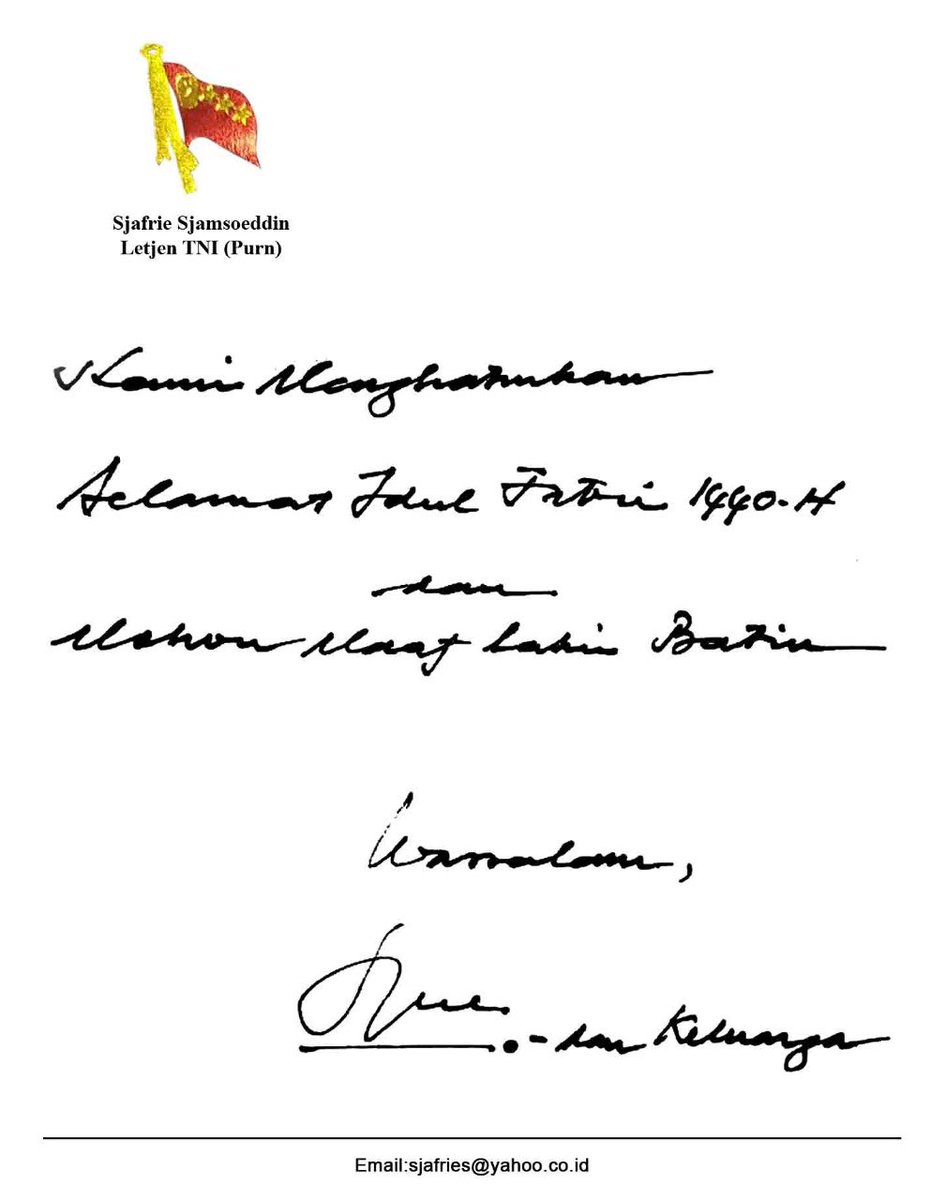 Sjafrie Sjamsoeddin
Letjen TNI (Purn)
Kami Menghaturkan
Selamat Idul Fitri 1440-H
dan
Mohon Maaf Lahir Batin
Wassalam,
- dan Keluarga
Email:sjafries@yahoo.co.id